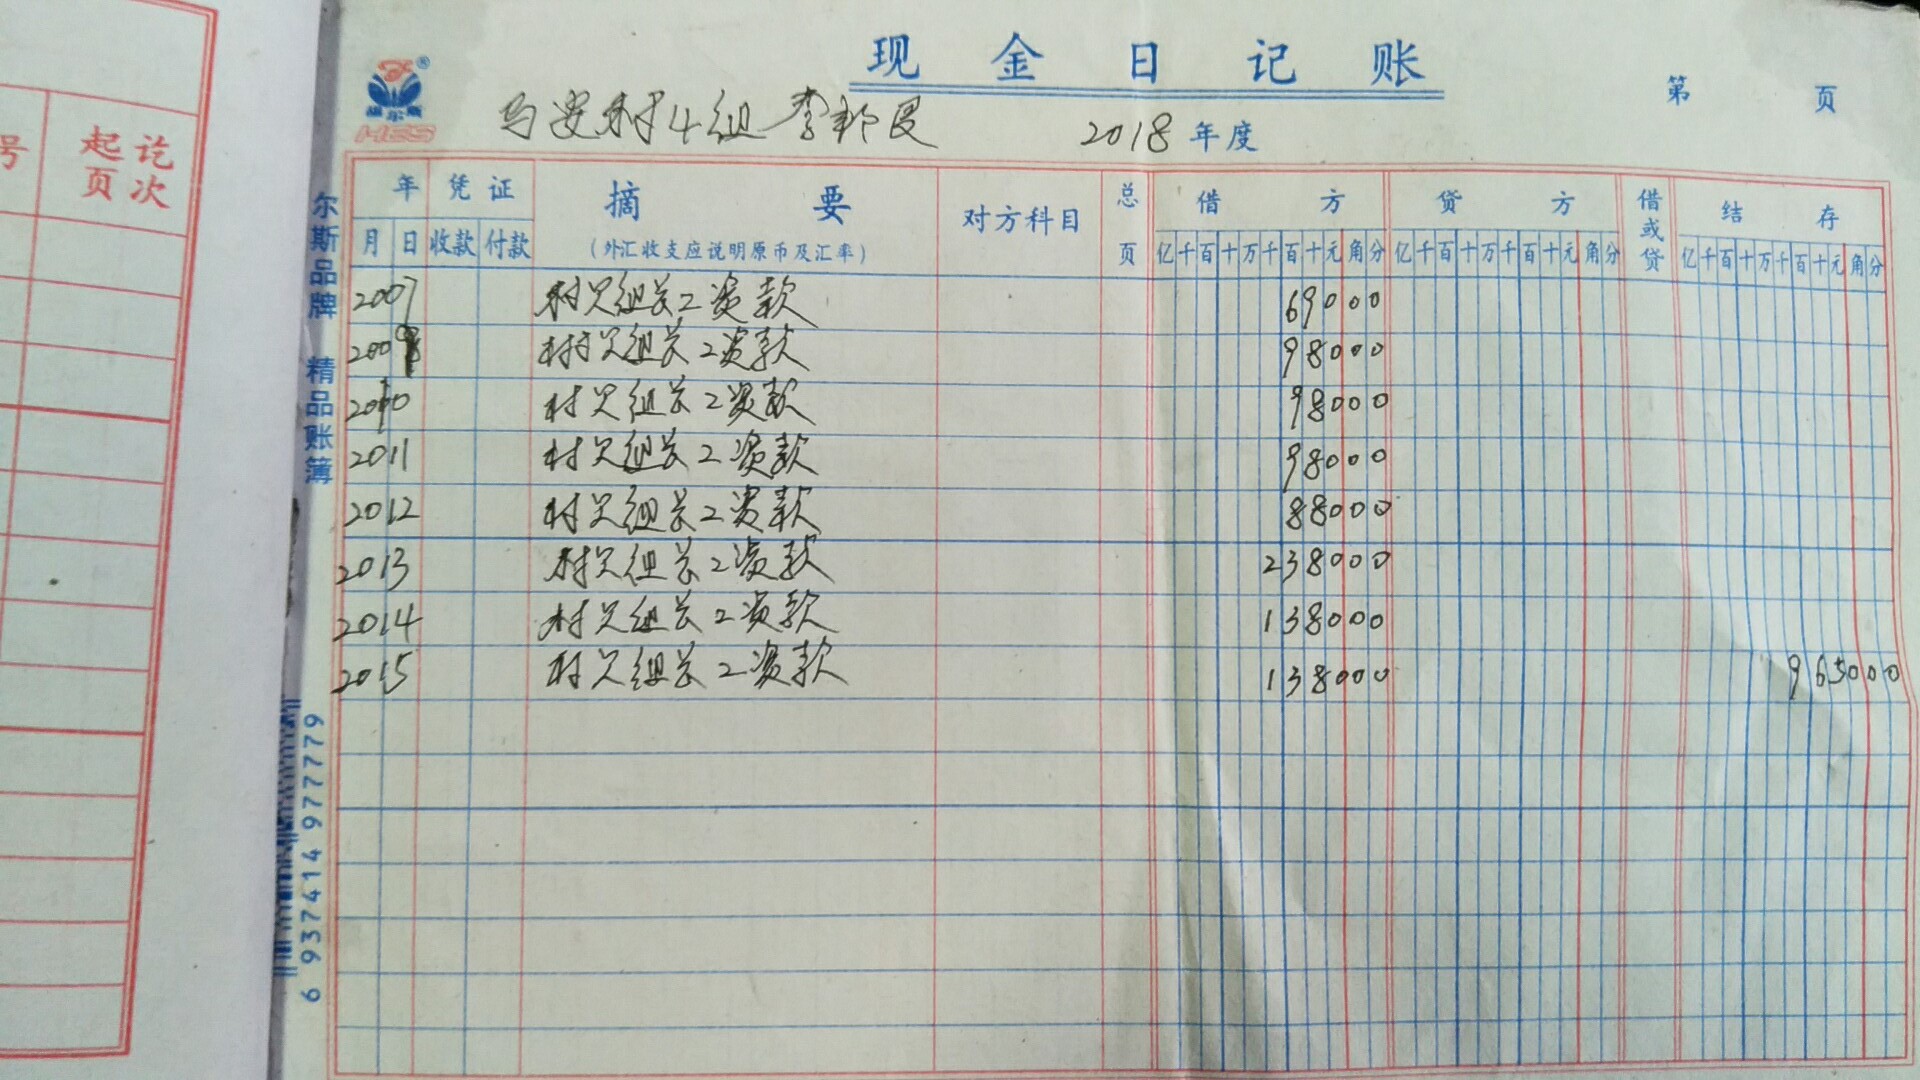 现金日记账
第 页
马安村4组 李邦民
2018年度
HES
号
起讫
页次
尔斯品牌 精品账簿
年 凭证 摘要 对方科目 总页 借方 贷方 借或贷 结存
月 日 收款 付款 (外汇收支应说明原币及汇率) 亿千百十万千百十元角分 亿千百十万千百十元角分 亿千百十万千百十元角分
2007 村欠组长工资款 69000
村欠组长工资款 98000
2010 村欠组长工资款 98000
2011 村欠组长工资款 98000
2012 村欠组长工资款 88000
2013 村欠组长工资款 238000
2014 村欠组长工资款 138000
2015 村欠组长工资款 138000 965000
6 937414 977779